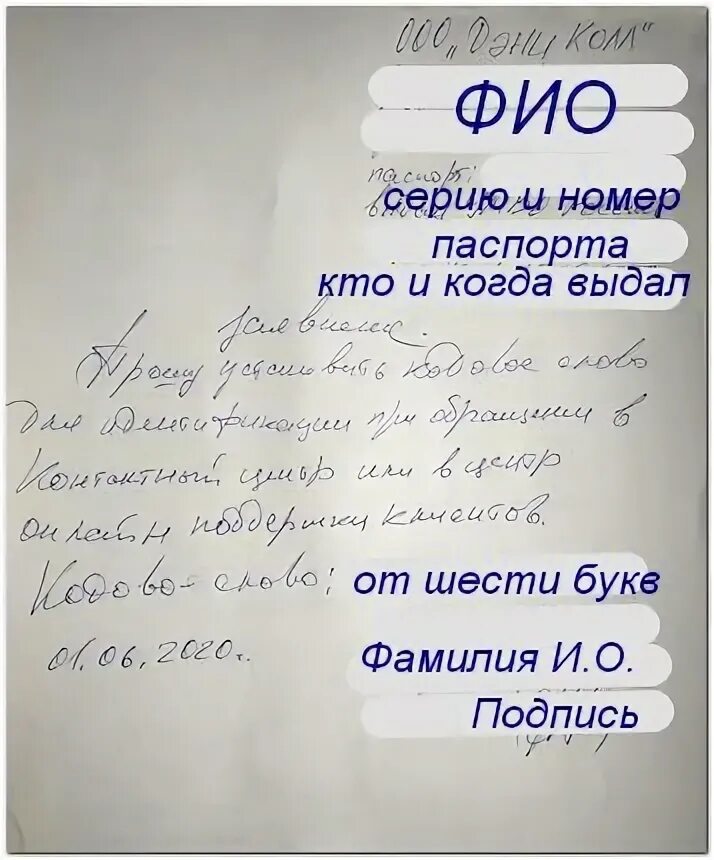 ООО „Дэни Колл"
ФИО
паспорт:
серию и номер
паспорта
кто и когда выдал
Заявление.
Прошу установить кодовое слово
для идентификации при обращении в
Контактный центр или в центр
онлайн поддержки клиентов.
Кодовое слово: от шести букв
01.06.2020г.
Фамилия И.О.
Подпись